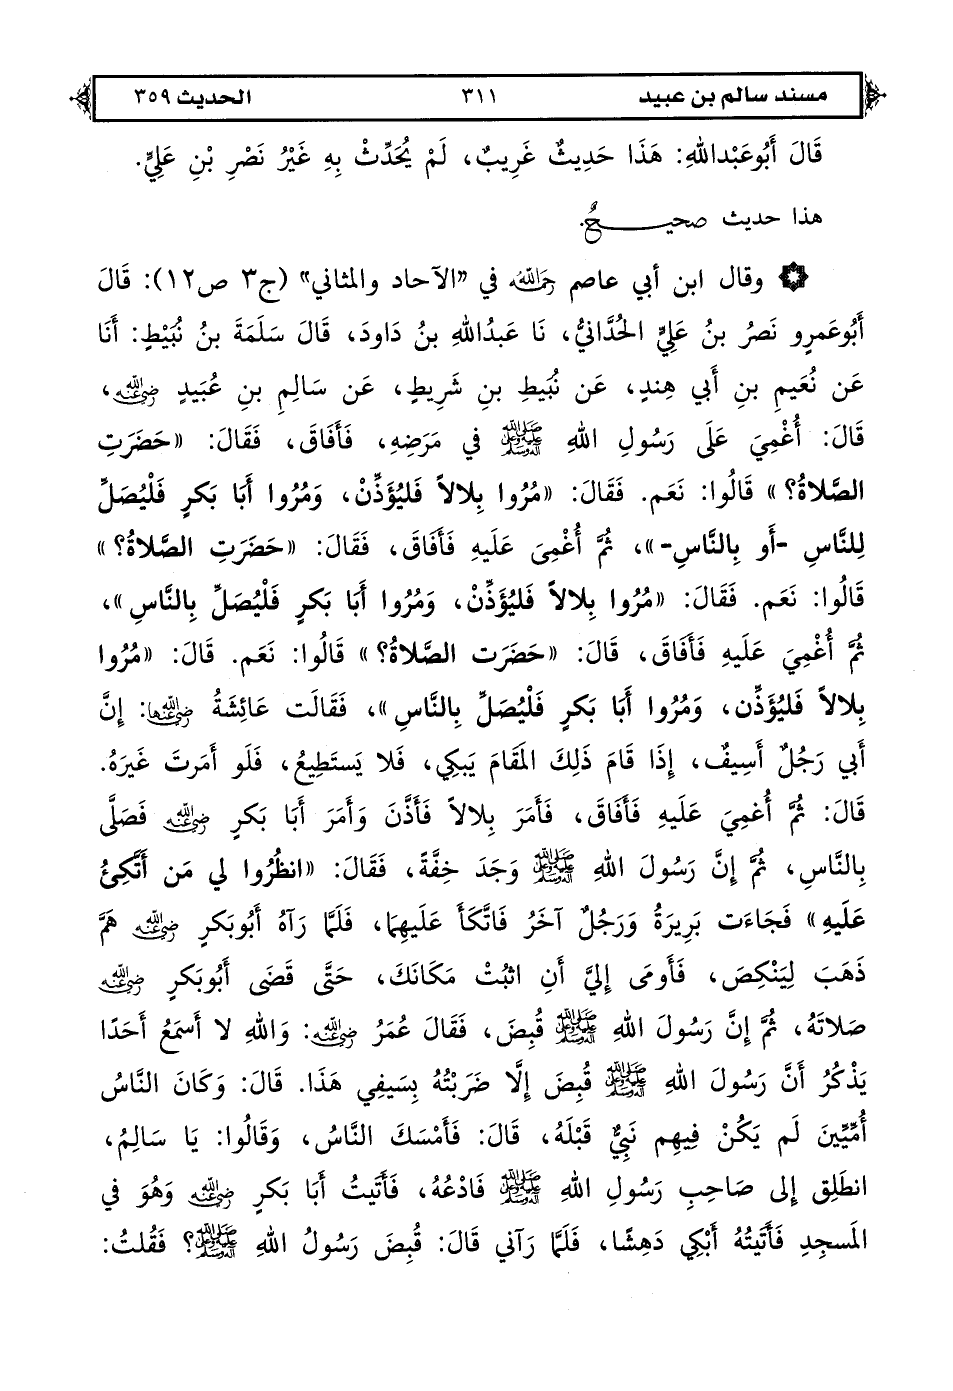 مسند سالم بن عبيد ٣١١ الحديث ٣٥٩
قَالَ أَبُوعَبْداللهِ: هَذَا حَدِيثٌ غَرِيبٌ، لَمْ يُحَدِّثْ بِهِ غَيْرُ نَصْرِ بْنِ عَلِيٍّ.
هذا حديث صحيحٌ.
۞ وقال ابن أبي عاصم رحمه الله في «الآحاد والمثاني» (ج٣ ص١٢): قَالَ
أَبُوعَمرٍو نَصرُ بنُ عَلِيٍّ الحُدَّانيُّ، نَا عَبدُاللهِ بنُ دَاودَ، قَالَ سَلَمَةَ بنُ نُبَيْطٍ: أَنَا
عَن نُعَيمِ بنِ أَبي هِندٍ، عَن نُبَيطِ بنِ شَرِيطٍ، عَن سَالِمِ بنِ عُبَيدٍ رضي الله عنه،
قَالَ: أُغْمِيَ عَلَى رَسُولِ اللهِ صلى الله عليه وآله وسلم في مَرَضِهِ، فَأَفَاقَ، فَقَالَ: «حَضَرَتِ
الصَّلاةُ؟» قَالُوا: نَعَم. فَقَالَ: «مُرُوا بِلالاً فَليُؤَذِّنْ، وَمُرُوا أَبَا بَكرٍ فَلْيُصَلِّ
لِلنَّاسِ -أَو بِالنَّاسِ-»، ثُمَّ أُغْمِىَ عَلَيهِ فَأَفَاقَ، فَقَالَ: «حَضَرَتِ الصَّلاةُ؟»
قَالُوا: نَعَم. فَقَالَ: «مُرُوا بِلالاً فَليُؤَذِّنْ، وَمُرُوا أَبَا بَكرٍ فَلْيُصَلِّ بِالنَّاسِ»،
ثُمَّ أُغْمِيَ عَلَيهِ فَأَفَاقَ، قَالَ: «حَضَرَت الصَّلاةُ؟» قَالُوا: نَعَم. قَالَ: «مُرُوا
بِلالاً فَليُؤَذِّن، وَمُرُوا أَبَا بَكرٍ فَلْيُصَلِّ بِالنَّاسِ»، فَقَالَت عَائِشَةُ رضي الله عنها: إِنَّ
أَبي رَجُلٌ أَسِيفٌ، إِذَا قَامَ ذَلِكَ المَقَامَ يَبكِي، فَلا يَستَطِيعُ، فَلَو أَمَرتَ غَيرَهُ.
قَالَ: ثُمَّ أُغمِيَ عَلَيهِ فَأَفَاقَ، فَأَمَرَ بِلالاً فَأَذَّنَ وَأَمَرَ أَبَا بَكرٍ رضي الله عنه فَصَلَّى
بِالنَّاسِ، ثُمَّ إِنَّ رَسُولَ اللهِ صلى الله عليه وآله وسلم وَجَدَ خِفَّةً، فَقَالَ: «انظُرُوا لي مَن أَتَّكِئُ
عَلَيهِ» فَجَاءَت بَرِيرَةُ وَرَجُلٌ آخَرُ فَاتَّكَأَ عَلَيهِمَا، فَلَمَّا رَآهُ أَبُوبَكرٍ رضي الله عنه هَمَّ
ذَهَبَ لِيَنْكِصَ، فَأَومَى إِليَّ أَنِ اثبُتْ مَكَانَكَ، حَتَّى قَضَى أَبُوبَكرٍ رضي الله عنه
صَلاتَهُ، ثُمَّ إِنَّ رَسُولَ اللهِ صلى الله عليه وآله وسلم قُبِضَ، فَقَالَ عُمَرُ رضي الله عنه: وَاللهِ لا أَسمَعُ أَحَدًا
يَذْكُرُ أَنَّ رَسُولَ اللهِ صلى الله عليه وآله وسلم قُبِضَ إِلَّا ضَرَبْتُهُ بِسَيفِي هَذَا. قَالَ: وَكَانَ النَّاسُ
أُمِّيِّينَ لَم يَكُنْ فِيهِم نَبِيٌّ قَبْلَهُ، قَالَ: فَأَمْسَكَ النَّاسُ، وَقَالُوا: يَا سَالِمُ،
انطَلِق إِلى صَاحِبِ رَسُولِ اللهِ صلى الله عليه وآله وسلم فَادْعُهُ، فَأَتَيتُ أَبَا بَكرٍ رضي الله عنه وَهُوَ في
المَسجِدِ فَأَتَيْتُهُ أَبْكِي دَهِشًا، فَلَمَّا رَآني قَالَ: قُبِضَ رَسُولُ اللهِ صلى الله عليه وآله وسلم؟ فَقُلتُ: